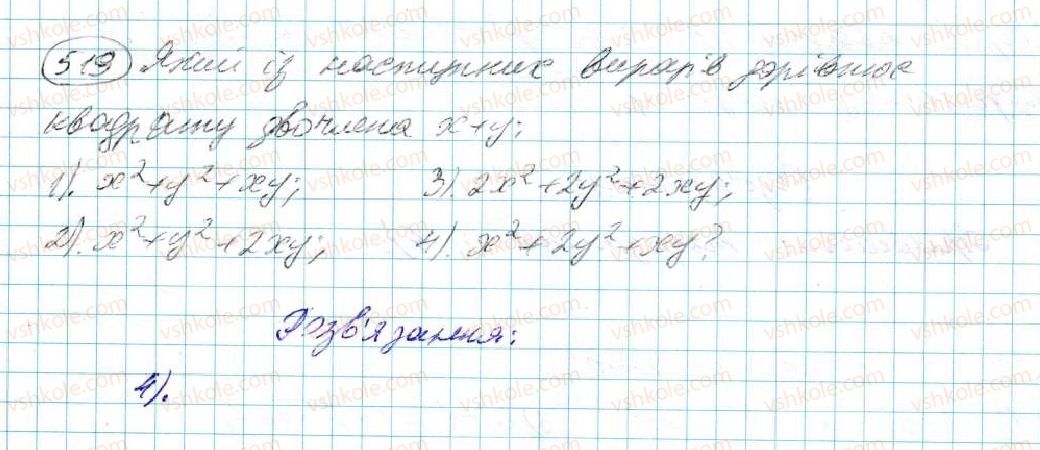 519 Який із наступних виразів дорівнює
квадрату двочлена x+y:
1). x²+y²+xy; 3). 2x²+2y²+2xy;
2). x²+y²+2xy; 4). x²+2y²+xy?
Розв'язання:
4).